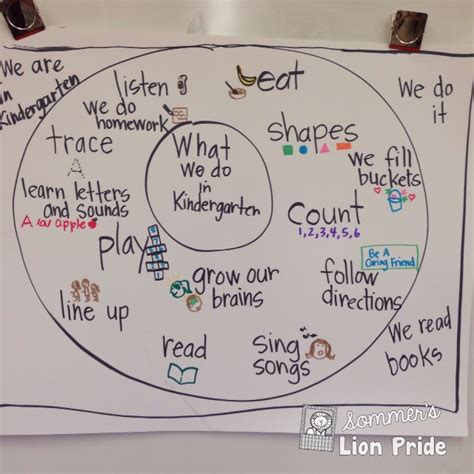 We are
in
Kindergarten
listen
eat
We do
it
we do
homework
shapes
trace
A
What
we do
in
Kindergarten
we fill
buckets
learn letters
and sounds
A /a/ apple
Count
1,2,3,4,5,6
play
Be A
Caring Friend
grow our
brains
follow
directions
line up
We read
books
read
sing
songs
sommer's
Lion Pride